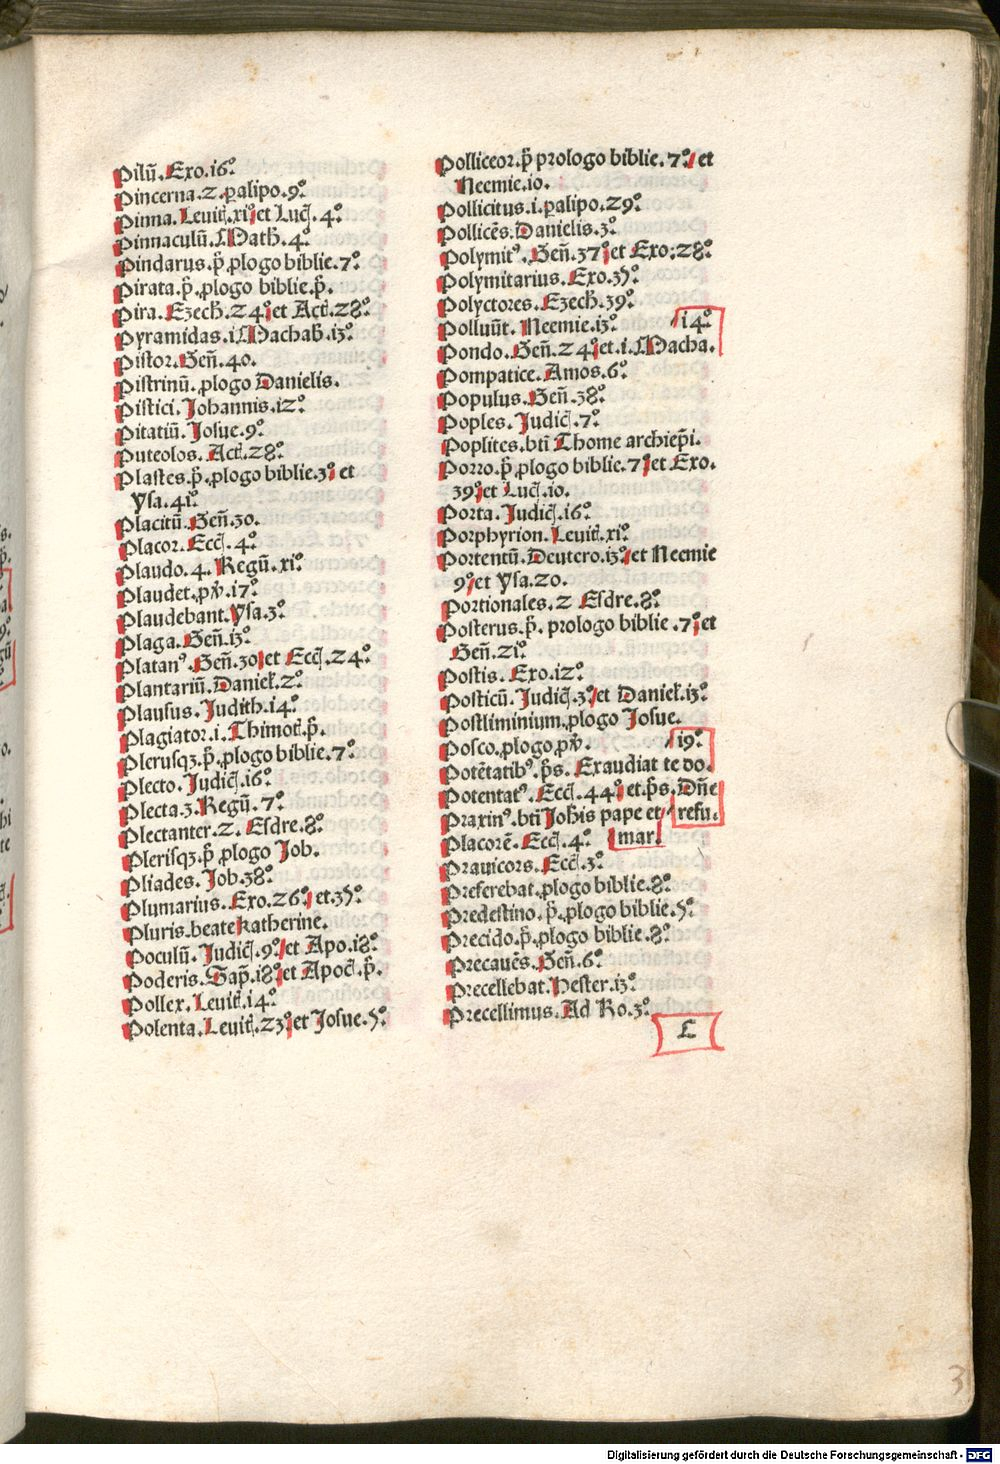 Pilū. Exo. i6°.
Pincerna. 2. ꝑalipo. 9°.
Pinna. Leuit̄. xi° et Luc̄. 4°.
Pinnaculū. Math̄. 4°.
Pindarus. p̄. ꝓlogo biblie. 7°.
Pirata. p̄. ꝓlogo biblie. p̄.
Pira. Ezech̄. 24° et Act̄. 28°.
Pyramidas. i. Machab̄. i3°.
Pistor. Gen̄. 40.
Pistrinū. ꝓlogo Danielis.
Pistici. Johannis. i2°.
Pitatiū. Josue. 9°.
Puteolos. Act̄. 28°.
Plastes. p̄. ꝓlogo biblie. 3° et
Ysa. 4i°.
Placitū. Gen̄. 30.
Placor. Ecc̄. 4°.
Plaudo. 4. Regū. xi°.
Plaudet. pꝰv̄. i7°.
Plaudebant. Ysa. 3°.
Plaga. Gen̄. i3°.
Platanꝰ. Gen̄. 30 et Ecc̄. 24°.
Plantariū. Daniel̄. 2°.
Plausus. Judith. i4°.
Plagiator. i. Thimot̄. p̄.
Plerusqꝫ. p̄. ꝓlogo biblie. 7°.
Plecto. Judic̄. i6°.
Plecta. 3. Regū. 7°.
Plectanter. 2. Esdre. 8°.
Plerisqꝫ. p̄. ꝓlogo Job.
Pliades. Job. 38°.
Plumarius. Exo. 26° et. 35°.
Pluris. beate katherine.
Poculū. Judic̄. 9° et Apo. i8°.
Poderis. Sap̄. i8° et Apoc̄. p̄.
Pollex. Leuit̄. i4°.
Polenta. Leuit̄. 23° et Josue. 5°.
Polliceor. p̄. prologo biblie. 7° et
Neemie. io.
Pollicitus. i. ꝑalipo. 29°.
Pollicēs. Danielis. 3°.
Polymitꝰ. Gen̄. 37° et Exo: 28°.
Polymitarius. Exo. 35°.
Polyctores. Ezech̄. 39°.
Polluūt. Neemie. i3°. i4°.
Pondo. Gen̄. 24° et. i. Macha.
Pompatice. Amos. 6°.
Populus. Gen̄. 38°.
Poples. Judic̄. 7°.
Poplites. bti̅ Thome archiep̄i.
Porro. p̄. ꝓlogo biblie. 7° et Exo.
39° et Luc̄. io.
Porta. Judic̄. i6°.
Porphyrion. Leuit̄. xi°.
Portentū. Deutero. i3° et Neemie
9° et Ysa. 20.
Portionales. 2 Esdre. 8°.
Posterus. p̄. prologo biblie. 7° et
Gen̄. 2i°.
Postis. Exo. i2°.
Posticū. Judic̄. 3° et Daniel̄. i3°.
Postliminium. ꝓlogo Josue.
Posco. ꝓlogo pꝰv̄. i9°.
Potētatibꝰ. p̄s. Exaudiat te do.
Potentatꝰ. Ecc̄. 44° et. p̄s. Dn̄e
Praxinꝰ. bti̅ Joh̄is pape et refu.
Placorē. Ecc̄. 4°. mar.
Prauicors. Ecc̄. 3°.
Preferebat. ꝓlogo biblie. 8°.
Predestino. p̄. ꝓlogo biblie. 5°.
Precido. p̄. ꝓlogo biblie. 8°.
Precauēs. Gen̄. 6°.
Precellebat. Hester. i3°.
Precellimus. Ad Ro. 3°.
3
Digitalisierung gefördert durch die Deutsche Forschungsgemeinschaft - DFG